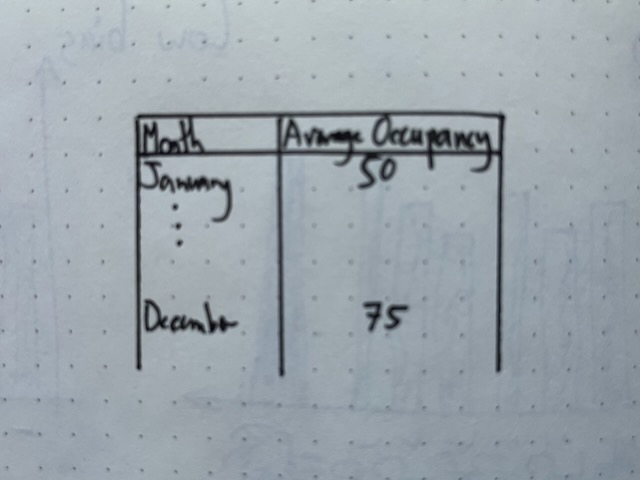 Month Average Occupancy
January 50
⋮
December 75